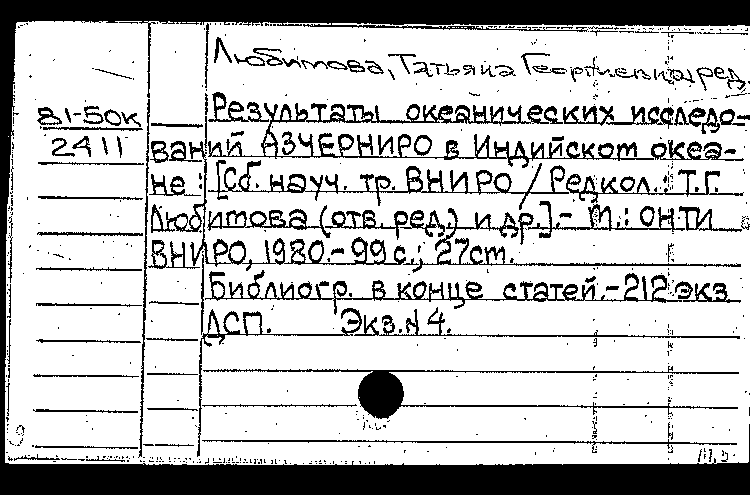 Любитова, Татьяна Георгиевна, ред.
81-50к
2411
Результаты океанических исследо-
ваний АЗЧЕРНИРО в Индийском океа-
не: [Сб. науч. тр. ВНИРО / Редкол.: Т.Г.
Любитова (отв. ред.) и др.].- М.: ОНТИ
ВНИРО, 1980.- 99 с.; 27см.
Библиогр. в конце статей.- 212 экз
ДСП. Экз.N 4.